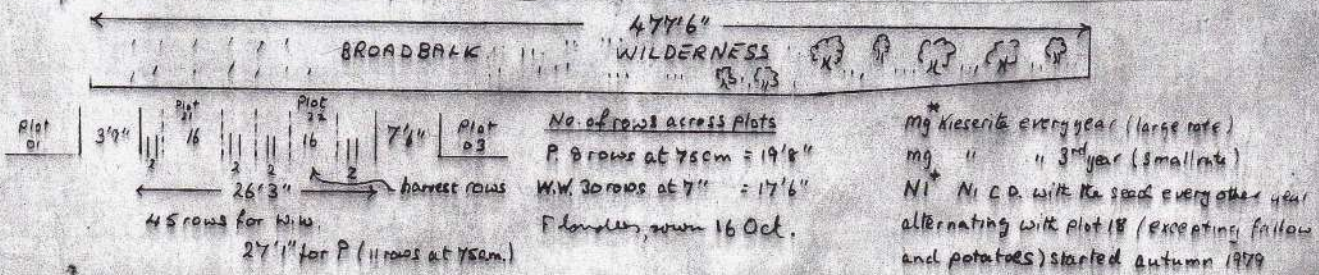 477'6"
BROADBALK WILDERNESS
Plot 01
3'9"
Plot 21
16
2
2
2
Plot 22
16
2
7'6"
Plot 03
26'3"
harvest rows
45 rows for W.W.
27'1" for P (11 rows at 75cm.)
No. of rows across plots
P. 8 rows at 75cm = 19'8"
W.W. 30 rows at 7" = 17'6"
Flanders, sown 16 Oct.
Mg* Kieserite every year (large rate)
Mg " " 3rd year (small rate)
N1* N1 C.D. with the seed every other year
alternating with plot 18 (excepting fallow
and potatoes) started autumn 1979